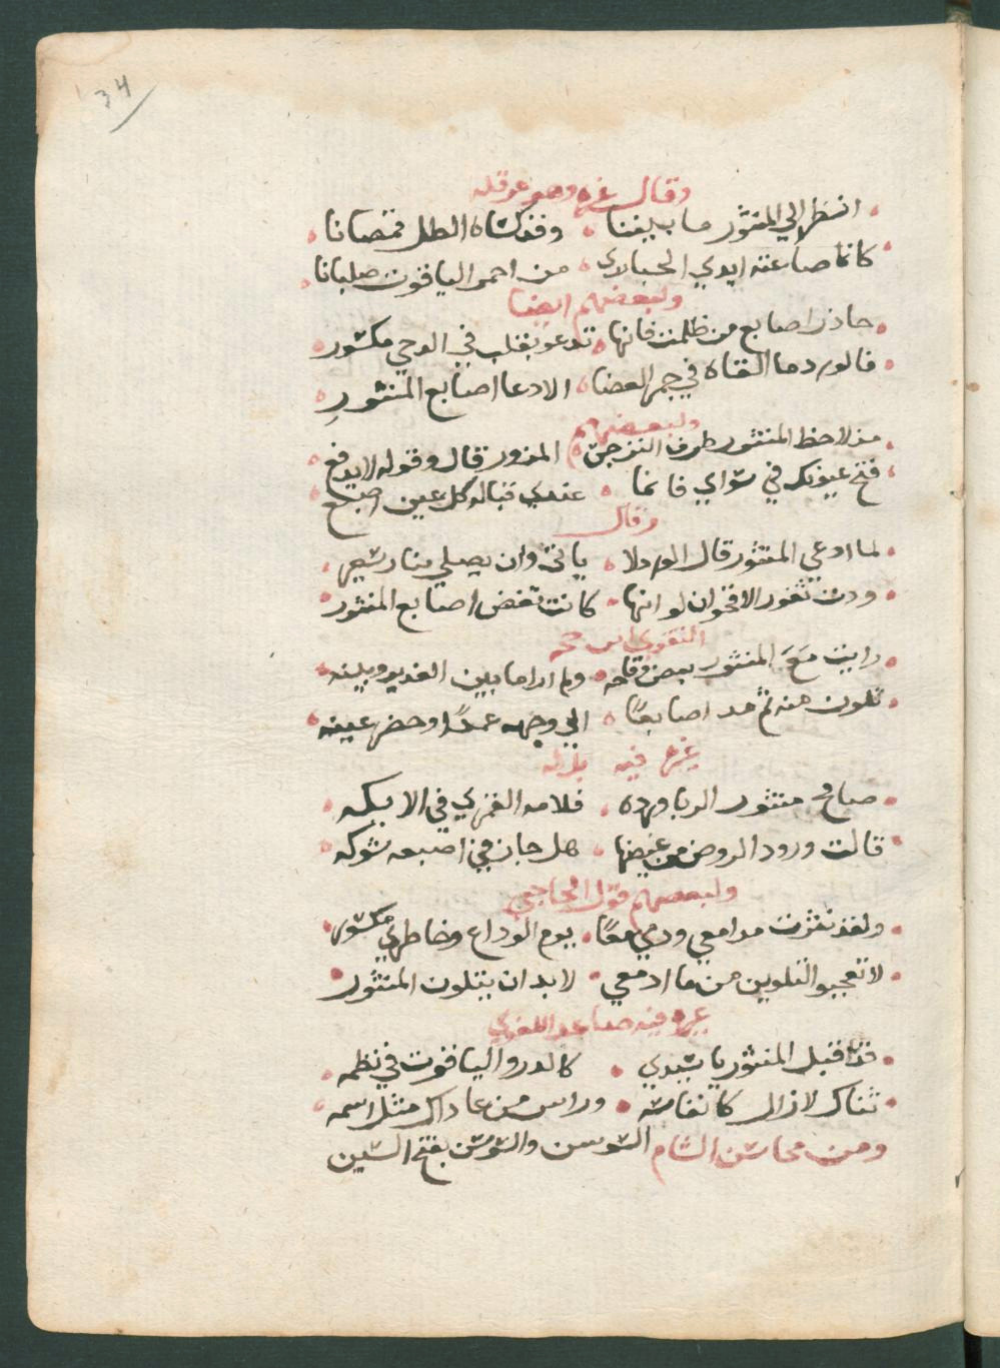 34
وقال غيره وهو عرقله
انظر الي المنثور ما بيننا وقد كساه الطل قمصانا
كانما صاغته ايدي الحيا من احمر الياقوت صلبانا
ولبعضهم ايضا
حاذر اصابع من ظلمت فانها تدعو بقلب في الدجي مكسور
فالورد ما القاه في جمر الغضا الا دعا اصابع المنثور
ولبعضهم
مذ لاحظ المنثور طرف النرجس المزور قال وقوله لا يدفع
فتح عيونك في سواي فانما عندي قبالة كل عين اصبع
وقال
لما ادعي المنثور قال الورد لا ياتي وان يصلي بنار سعير
ودت ثغور الاقحوان لو انها كانت تعض اصابع المنثور
التقوي ابن حجه
رايت مع المنثور بعض وقاحه ولم ادر ما بين الغدير وبينه
تلون منه ثم مد اصابعًا الي وجهه عمدًا وحضر عينه
غيره فيه
صافح منثور الربا ورده فلامه القمري في الايكه
قالت ورود الروض من غيضها هل جاز في اصبعه شوكه
ولبعضهم قول الحاجبي
ولقد نثرت مدامعي ودمي معًا يوم الوداع وخاطري مكسور
لا تعجبوا لتلوين من ما ادمعي لا بد ان يتلون المنثور
غيره فيه
قد اقبل المنثور يا سيدي كالدر والياقوت في نظمه
ثناك لا زال كانفاسه وراس من عاداك مثل اسمه
ومن محاسن الشام السوسن والسوسن بفتح السين